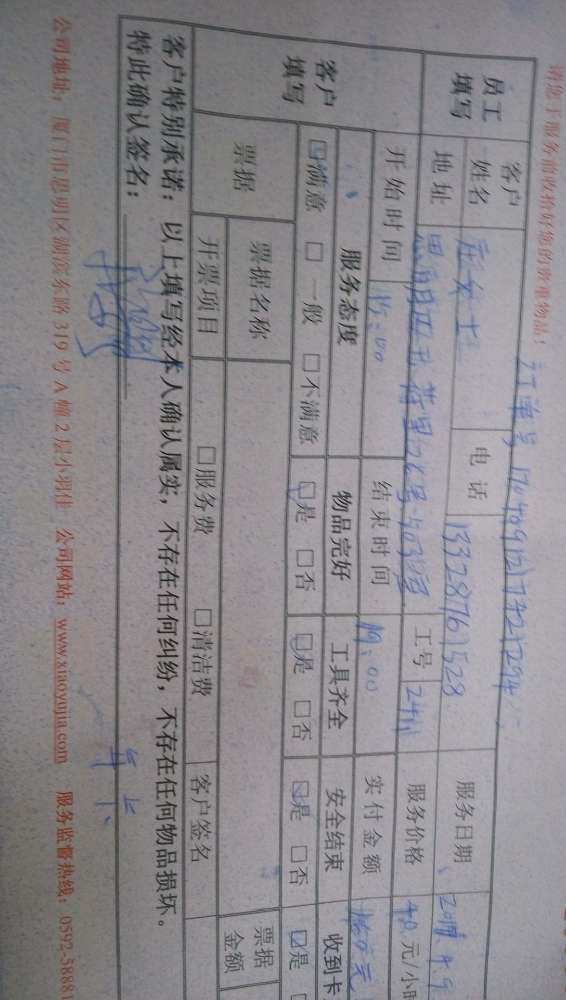 请您于服务前收拾好您的贵重物品！
员工填写
客户姓名
庄女士
电话
13328761528
服务日期
地址
工号
2411
服务价格
40 元/小时
开始时间
15:00
结束时间
19:00
实付金额
160元
客户填写
服务态度
物品完好
工具齐全
安全结束
收到卡
☑满意 □一般 □不满意
☑是 □否
☑是 □否
☑是 □否
☑是
票据
票据名称
票据金额
开票项目
□服务费 □清洁费
客户签名
客户特别承诺：以上填写经本人确认属实，不存在任何纠纷，不存在任何物品损坏。
特此确认签名：
公司地址：厦门市思明区湖滨东路 319 号 A 幢 2 层小羽佳 公司网站：www.xiaoyujia.com 服务监督热线：0592-58881